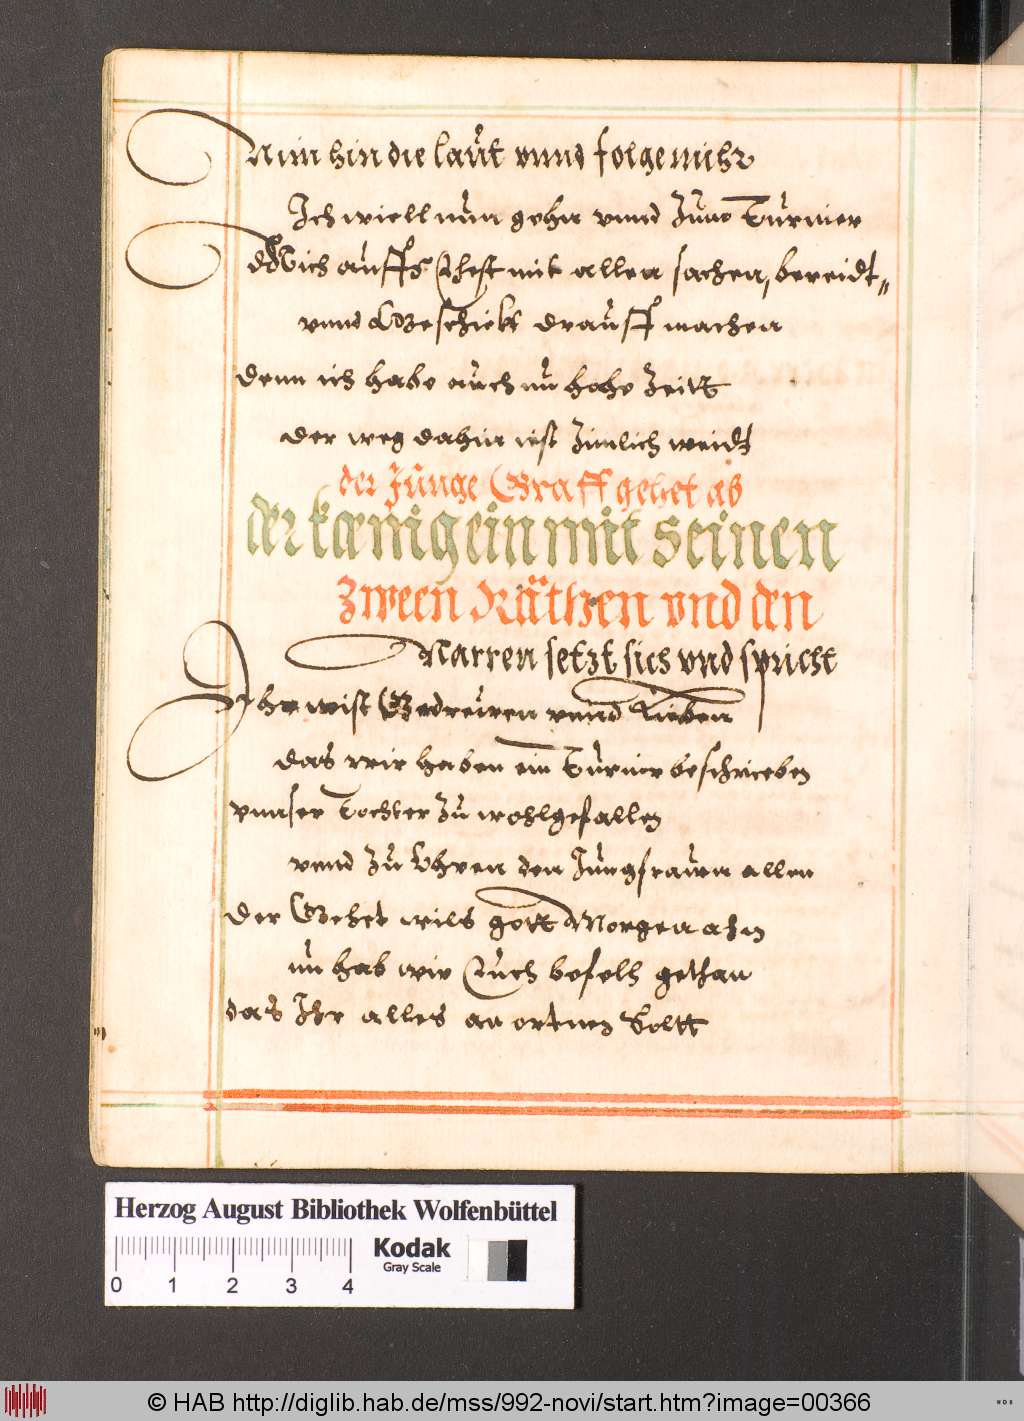 Nim hin die laut vnnd folge mihr
Ich wiell nun gehn vnnd Zum Turnier
dich auffs Ehest mit allen sachen, bereidt„
vnnd Geschickt drauff machen
denn ich habe auch nu hohe Zeitt
der weg dahin ist Zimlich weidt
der Junge Graff gehet ab
der kœnig ein mit seinen
Zween Räthen vnd den
Narren setzt sich vnd spricht
Ihr wist Gedreuwen vnnd Lieben
das wir haben ein Turnier beschrieeben
vnnser Tochter Zu wohlgefallen
vnnd Zu Ehren den Jungfrauen allen
der Gehet wils gott Morgen ahn
nu hab wir Euch befelh gethan
das Ihr alles an ortnen Soltt
Herzog August Bibliothek Wolfenbüttel
Kodak
Gray Scale
0 1 2 3 4
© HAB http://diglib.hab.de/mss/992-novi/start.htm?image=00366